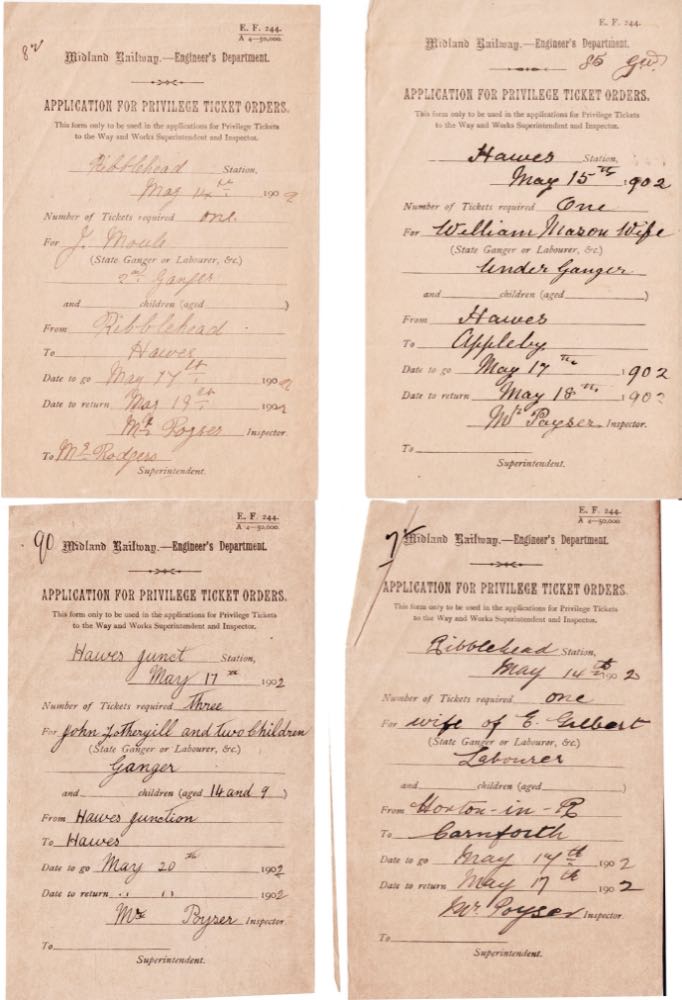 E. F. 244.
A 4—50,000.
82
Midland Railway.—Engineer's Department.
APPLICATION FOR PRIVILEGE TICKET ORDERS.
This form only to be used in the applications for Privilege Tickets
to the Way and Works Superintendent and Inspector.
Ribblehead Station,
May 14th 1902
Number of Tickets required one.
For J. Moule
(State Ganger or Labourer, &c.)
2nd Ganger
and children (aged )
From Ribblehead
To Hawes
Date to go May 17th 1902
Date to return May 19th 1902
Mr. Poyser Inspector.
To Mr. Rodgers
Superintendent.
E. F. 244.
Midland Railway.—Engineer's Department.
85
APPLICATION FOR PRIVILEGE TICKET ORDERS.
This form only to be used in the applications for Privilege Tickets
to the Way and Works Superintendent and Inspector.
Hawes Station,
May 15th 1902
Number of Tickets required One
For William Mason Wife
(State Ganger or Labourer, &c.)
Under Ganger
and children (aged )
From Hawes
To Appleby
Date to go May 17th 1902
Date to return May 18th 1902
Mr Poyser Inspector.
To
Superintendent.
E. F. 244.
A 4—50,000.
90
Midland Railway.—Engineer's Department.
APPLICATION FOR PRIVILEGE TICKET ORDERS.
This form only to be used in the applications for Privilege Tickets
to the Way and Works Superintendent and Inspector.
Hawes Junct Station,
May 17th 1902
Number of Tickets required Three
For John Fothergill and two Children
(State Ganger or Labourer, &c.)
Ganger
and children (aged 14 and 9 )
From Hawes junction
To Hawes
Date to go May 20th 1902
Date to return " " 1902
Mr Poyser Inspector
To
Superintendent.
E. F. 244.
A 4—50,000.
Midland Railway.—Engineer's Department.
APPLICATION FOR PRIVILEGE TICKET ORDERS.
This form only to be used in the applications for Privilege Tickets
to the Way and Works Superintendent and Inspector.
Ribblehead Station,
May 14th 1902
Number of Tickets required one
For wife of E. Gilbert
(State Ganger or Labourer, &c.)
Labourer
and children (aged )
From Horton-in-R
To Carnforth
Date to go May 17th 1902
Date to return May 17th 1902
Mr. Poyser Inspector
To
Superintendent.